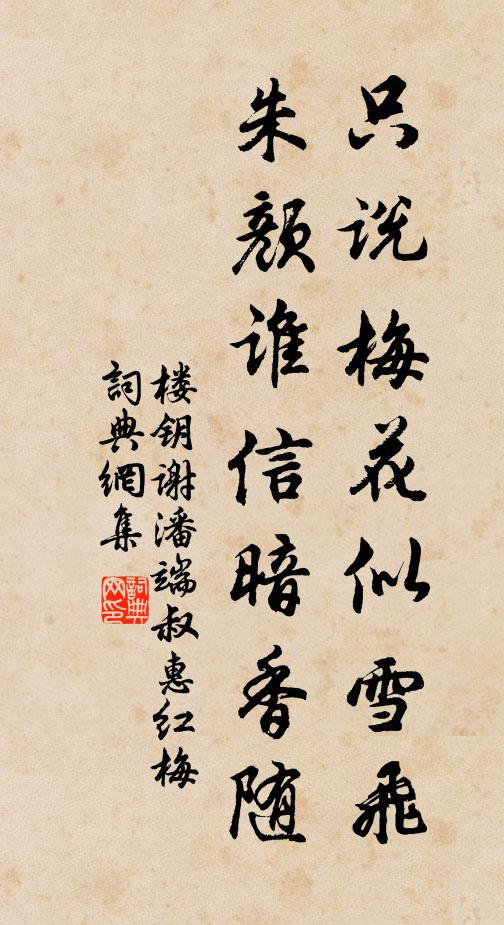 只说梅花似雪飞
朱颜谁信暗香随
楼钥谢潘端叔惠红梅
詞典網集
詞典网印